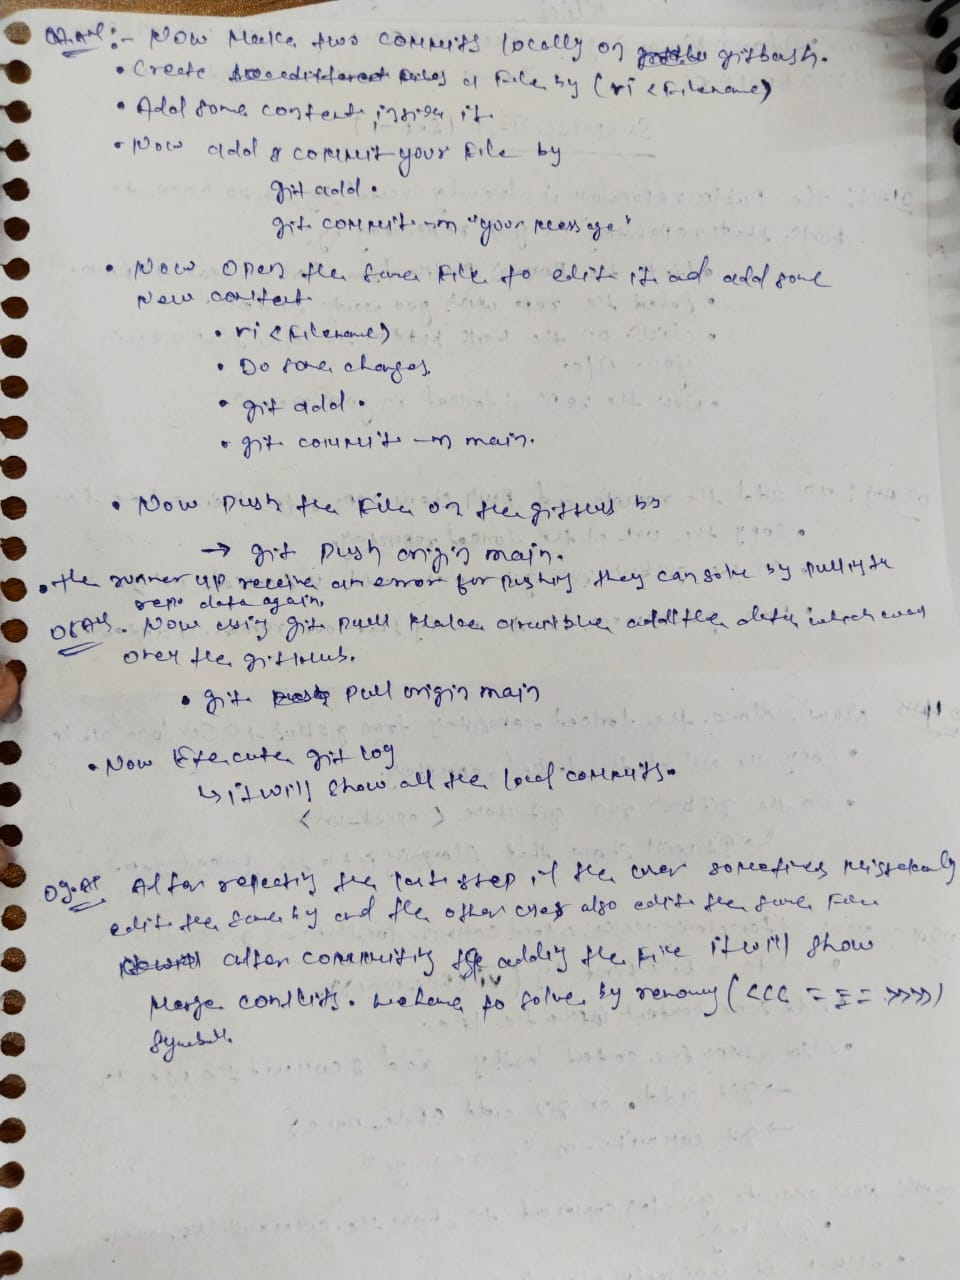 Now Make two commits locally on gitbash.
• Create a File by (vi <Filename>)
• Add some content inside it
• Now add & commit your File by
git add .
git commit -m "your message"
• Now open the same File to edit it and add some
New content.
• vi <Filename>
• Do some changes.
• git add .
• git commit -m main.
• Now push the File on the github by
→ git push origin main.
• The runner up receive an error for pushing they can solve by pulling the
repo data again.
• Now using git pull Make add the data which
over the github.
• git pull origin main
• Now Execute git log
↳ it will show all the local commits.
After repeating the step if the user sometimes mistakenly
edit the same by and the other user also edit the same File
after commiting adding the File it will show
Merge conflicts. we have to solve by (<<< = = = >>>>)
symbols.